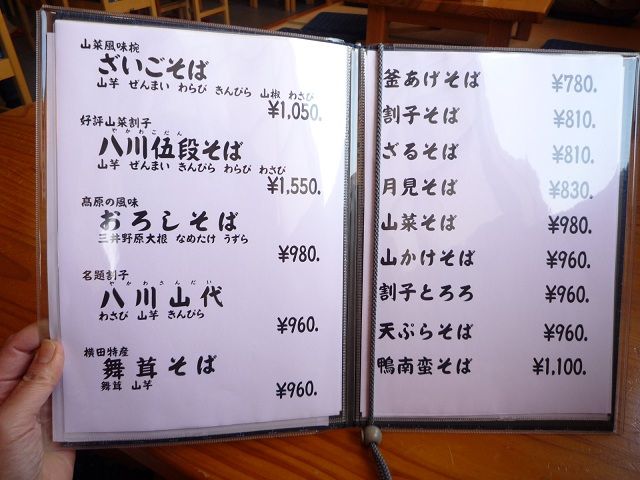 山菜風味椀
ざいごそば
山芋 ぜんまい わらび きんぴら 山椒 わさび
¥1,050.
好評山菜割子
やかわごだん
八川伍段そば
山芋 ぜんまい きんぴら わらび わさび
¥1,550.
高原の風味
おろしそば
三井野原大根 なめたけ うずら
¥980.
名題割子
やかわさんだい
八川山代
わさび 山芋 きんぴら
¥960.
横田特産
舞茸そば
舞茸 山芋
¥960.
釜あげそば ¥780.
割子そば ¥810.
ざるそば ¥810.
月見そば ¥830.
山菜そば ¥980.
山かけそば ¥960.
割子とろろ ¥960.
天ぷらそば ¥960.
鴨南蛮そば ¥1,100.